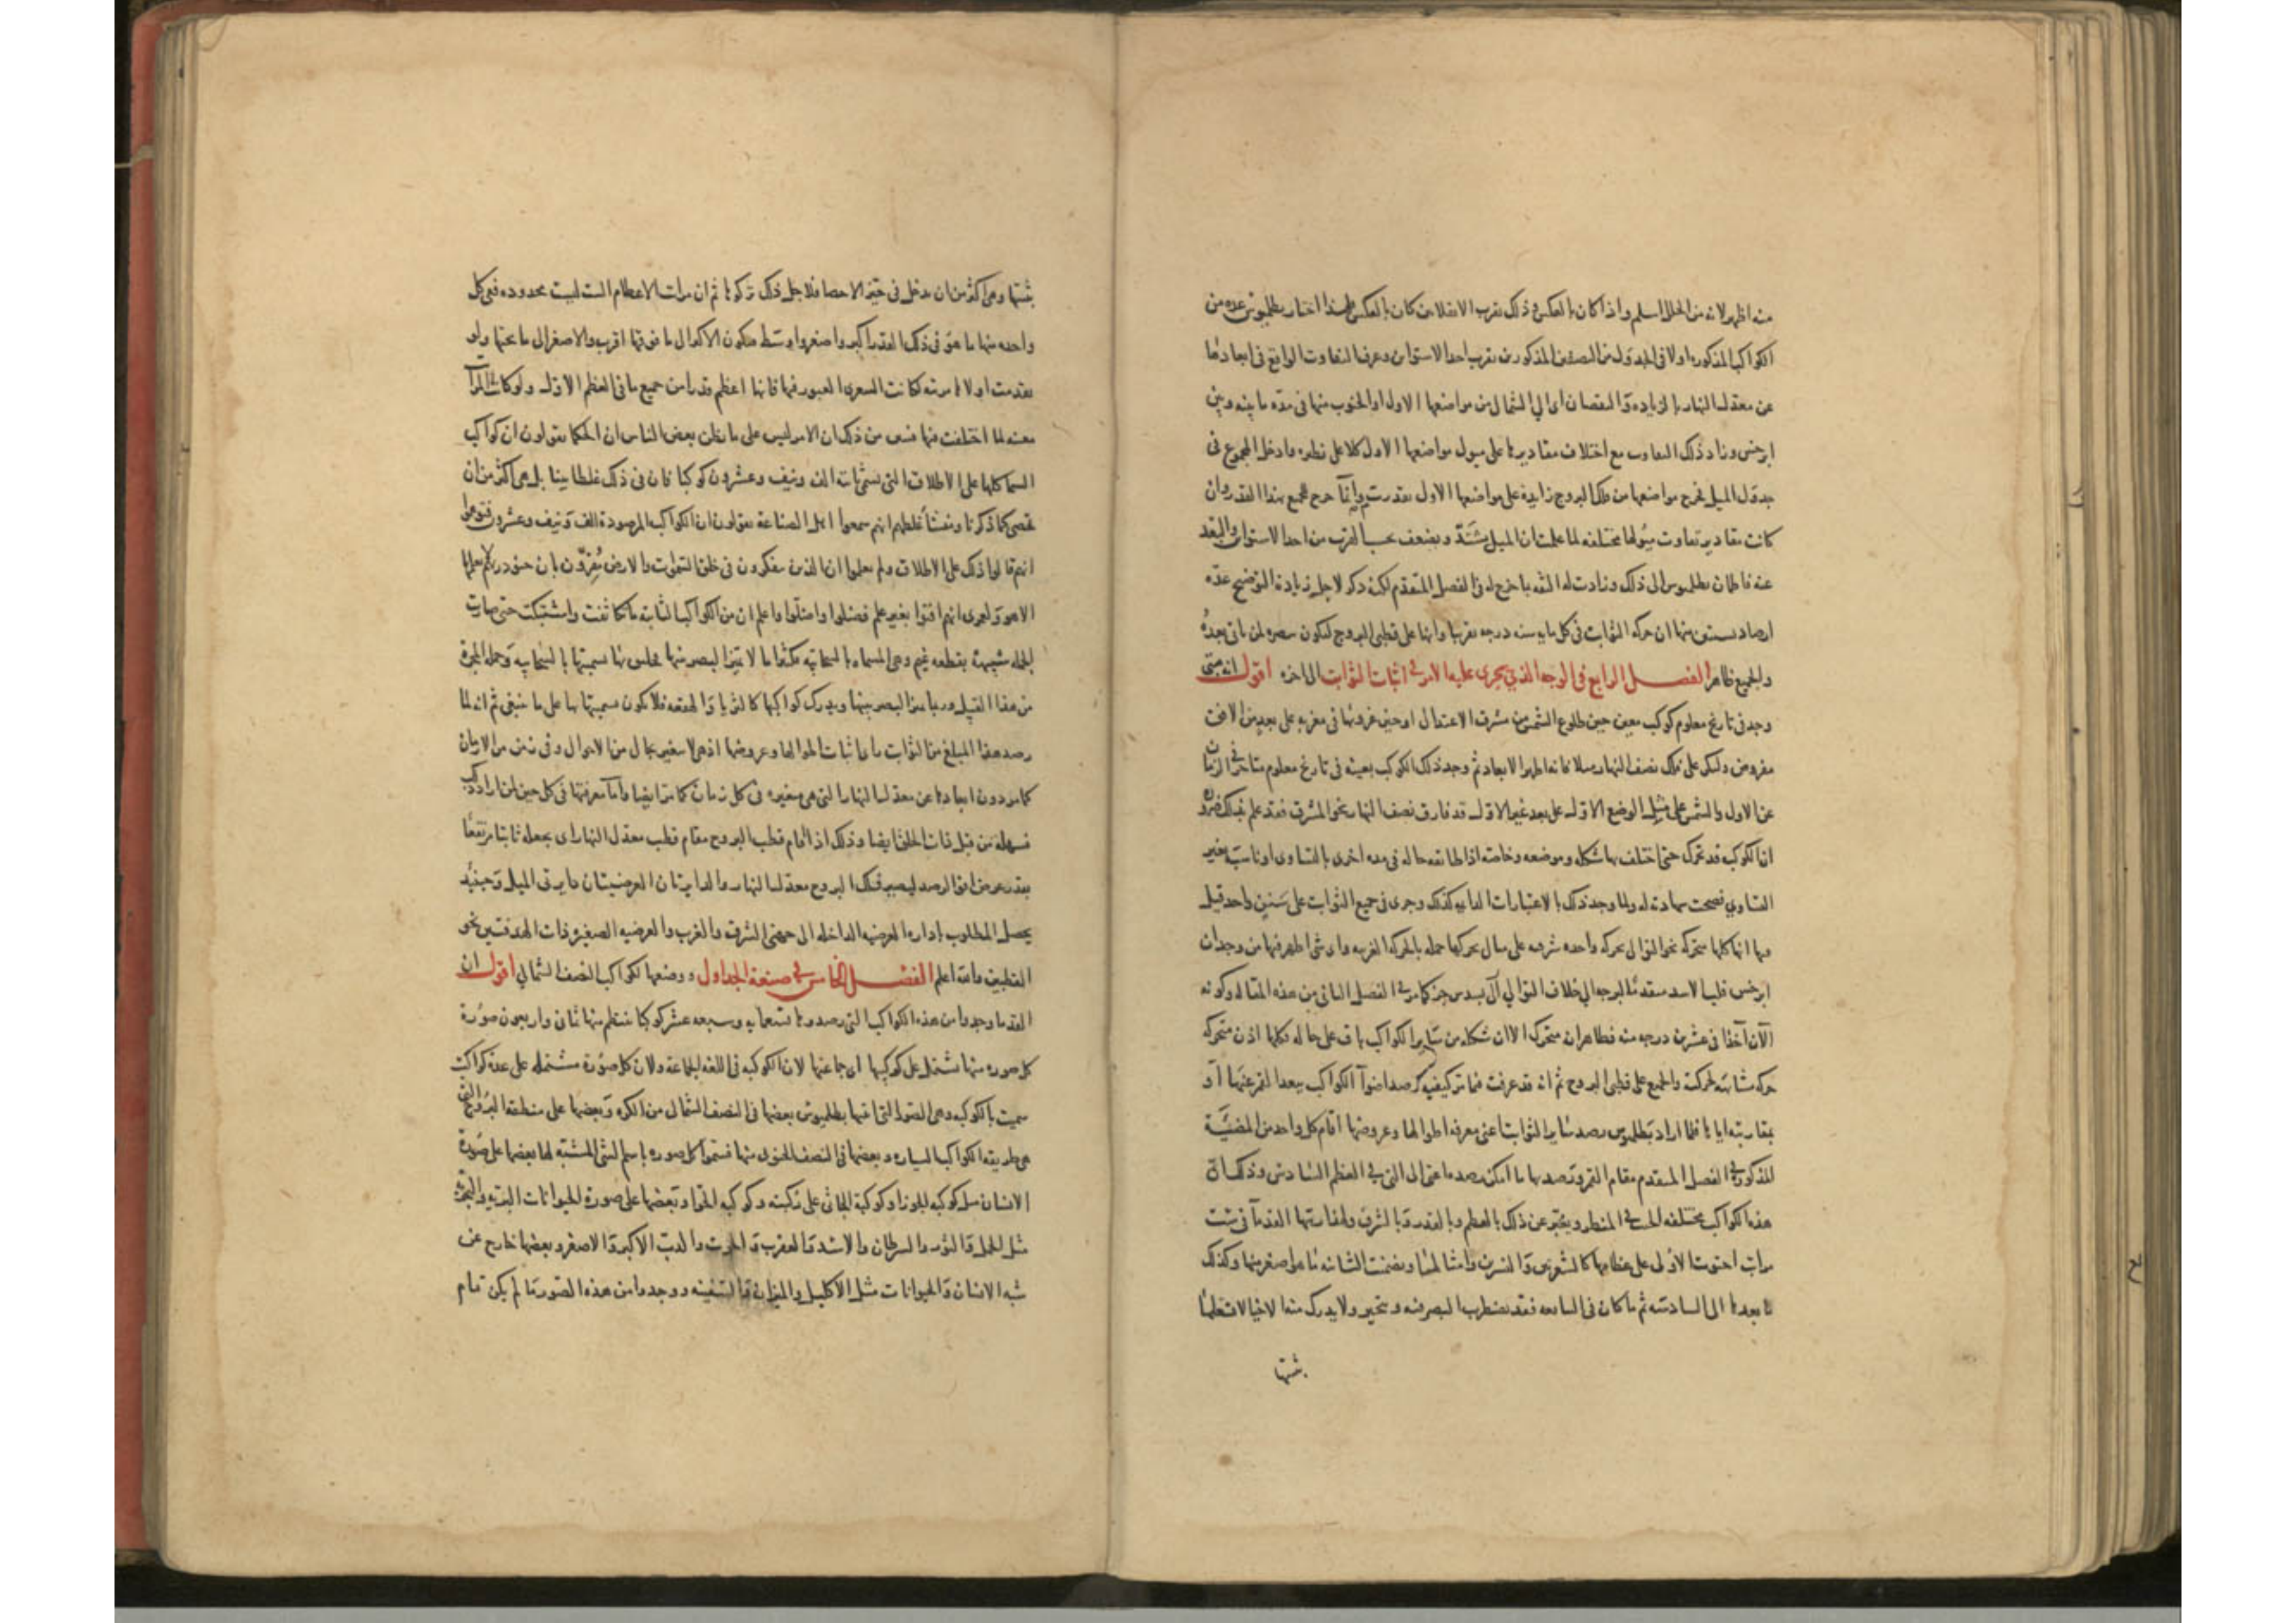 منه اظهر لانه من الخلل اسلم واذا كان بالعكس في ذلك بقرب الانقلابين كان بالعكس ولهذا اختار بطلميوس عده من
الكواكب المذكوره اولا في الجدول من الصنفين المذكورين بقرب احد الاستوائين وعرف التفاوت الواقع في ابعادها
عن معدل النهار بالزياده والنقصان اي الى الشمال من مواضعها الاول او الجنوب منها في مدة ما بينه وبين
ابرخس وزاد ذلك التفاوت مع اختلاف مقاديرها على ميول مواضعها الاول كلا على نظيره وادخل المجموع في
جدول الميل فخرج مواضعها من فلك البروج زايدة على مواضعها الاول بقدر وانما خرج للجميع هذا القدر وان
كانت مقادير تفاوت ميولها مختلفه لما علمت ان الميل يشتد ويضعف بحسب القرب من احد الاستوائين والبعد
عنه فاطمان بطلميوس الى ذلك وزادت له الثقه باخرج له في الفصل المتقدم لكنه ذكر لاجل زيادة التوضيح عدة
ارصاد يستبين منها ان حركة الثوابت في كل مايه سنه درجه تقريبا وانها على قطبي البروج لتكون تبصره لمن ياتي بعده
والجميع ظاهر الفصل الرابع في الوجه الذي يجري عليه الامر في اثبات الثوابت الى اخره اقول انه متى
وجد في تاريخ معلوم كوكب معين حين طلوع الشمس من مشرق الاعتدال او حين غروبها في مغربه على بعد من الافق
مفروض وليكن على فلك نصف النهار مثلا فانه اظهر الابعاد ثم وجد ذلك الكوكب بعينه في تاريخ معلوم متاخر في الزمان
عن الاول والشمس على مثل الوضع الاول على بعد غير الاول قد فارق نصف النهار نحو المشرق فقد علم بذلك ضرورة
ان الكوكب قد تحرك حتى اختلف بها شكله وموضعه وخاصة اذا طابقه حاله في مده اخرى بالتساوي او ناسبته بغير
التساوي فصحت شهادته له ولما وجد ذلك بالاعتبارات الدايمه كذلك وجرى في جميع الثوابت على سنن واحد قيل
فيها انها كلها متحركه نحو التوالي بحركه واحده شرقيه على مثال تحركها جمله بالحركه الغربيه واي شي اظهر فيها من وجدان
ابرخس قلب الاسد متقدما البرجه الى خلاف التوالي جز كما مر في الفصل الثاني من هذه المقاله وكونه
الان آخذا في عشرين درجه منه فظاهر انه متحرك الا ان شكله من ساير الكواكب باق على حاله فكلها اذن متحركه
حركه مشابهة لحركته والجميع على قطبي البروج ثم انه قد عرفت فيما مر كيفية رصد اضوآ الكواكب ببعد القمر عنها او
بمقاربته اياها فلما اراد بطلميوس رصد ساير الثوابت اعني معرفه اطوالها وعروضها اقام كل واحد من المضيّة
المذكوره في الفصل المتقدم مقام القمر ورصد بها ما امكن رصده اعني الى التي في العظم السادس وذلك ان
هذه الكواكب مختلفه الحس في المنظر ويعبر عن ذلك بالعظم وبالقدر وبالشرف ولمقاربتها القدمآ في ست
مراتب احتوت الاولى على عظامها كالشعريين والنسرين وامثالها وتضمنت الثانيه ما هو اصغر منها وكذلك
ما بعدها الى السادسه ثم ما كان في السابعه فقد يضطرب البصر فيه ويتحير ولا يدرك منه الا خيالا فقلما
يثبتها
يثبتها وهي اكثر من ان يدخل في حيز الاحصا فلاجل ذلك تركوها ثم ان مراتب الاعظام الست ليست محدوده ففي كل
واحده منها ما هو في ذلك القدر اكبر واصغر واوسط فيكون الاكبر الى ما فوقها اقرب والاصغر الى ما تحتها ولو
تقدمت اولاها مرتبه لكانت الشعرى العبور فيها فانها اعظم قدرا من جميع ما في العظم الاول ولو كانت المراتب
معينه لما اختلفت فيها فتبين من ذلك ان الامر ليس على ما يظن بعض الناس ان الحكما يقولون ان كواكب
السما كلها على الاطلاق التي تستبان الف ونيف وعشرون كوكبا فان في ذلك غلطا بينا بل هي اكثر من ان
تحصى كما ذكرنا ومنشأ غلطهم انهم سمعوا اهل الصناعة يقولون ان الكواكب المرصودة الف ونيف وعشرون فتوهموا
انهم قالوا ذلك على الاطلاق ولم يعلموا ان الذين يتفكرون في خلق السموات والارض يقرون بان جنود ربك لا يعلمها
الا هو ولعمري انهم افتوا بغير علم فضلوا واضلوا واعلم ان من الكواكب الثابته ما تكاثفت واشتبكت حتى صارت
الجمله شبيهة بقطعه غيم وهي المسماه بالسحابيه مكثفا ما لا يميز البصر منها فليس لها تسميتها بالسحابيه وجمله المجرة
من هذا القبيل وربما ميز البصر بينها ويدرك كواكبها كالثريا والهقعه فلا يكون تسميتها بها على ما ينبغي ثم انه لما
رصد هذا المبلغ من الثوابت راى اثبات اطوالها وعروضها اذ هي لا تتغير بحال من الاحوال وفي زمن من الازمان
كما مر دون ابعادها عن معدل النهار التي هي متغيره في كل زمان كما مر ايضا واما معرفتها في كل حين لمن اراد ذلك
فسهله من قبل ذات الحلق ايضا وذلك اذا اقام قطب البروج مقام قطب معدل النهار اي يجعله ثابتا مرتفعا
بقدر عرض افق الرصد ليصير فلك البروج معدل النهار والدايرتان العرضيتان دايرتي الميل وحينئذ
يحصل المطلوب بادارة العرضيه الداخله الى جهتي الشرق والغرب والعرضيه الصغيره ذات الهدفتين نحو
القطبين والله اعلم الفصل الخامس في صنعة الجداول ووضعها لكواكب النصف الشمالي اقول ان
القدما وجدوا من هذه الكواكب التي رصدوها تسعمايه وسبعه عشر كوكبا ينتظم منها ثماني واربعون صورة
كل صوره منها تشتمل على كوكبها اي جماعتها لان الكوكبه في اللغه الجماعة ولان كل صورة مشتمله على عدة كواكب
سميت بالكوكبه وهي الصور التي اثبتها بطلميوس بعضها في النصف الشمالي من الكره وبعضها على منطقة البروج التي
هي طريقه الكواكب السياره وبعضها في النصف الجنوبي منها فسموا كل صوره باسم الشي المشبه لها بعضها على صورة
الانسان مثل كوكبه الجوزا وكوكبة الجاثي على ركبته وكوكبه الحوا وبعضها على صورة الحيوانات البريه والبحريه
مثل الحمل والثور والسرطان والاسد والعقرب والحوت والدب الاكبر والاصغر وبعضها خارج عن
شبه الانسان والحيوانات مثل الاكليل والميزان والسفينه ووجدوا من هذه الصور ما لم يكن تمام